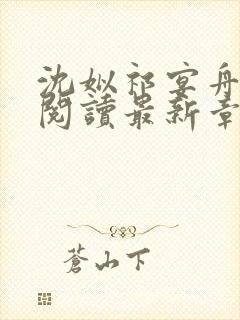 沈姒祁宴舟
閱讀最新章
蒼山下